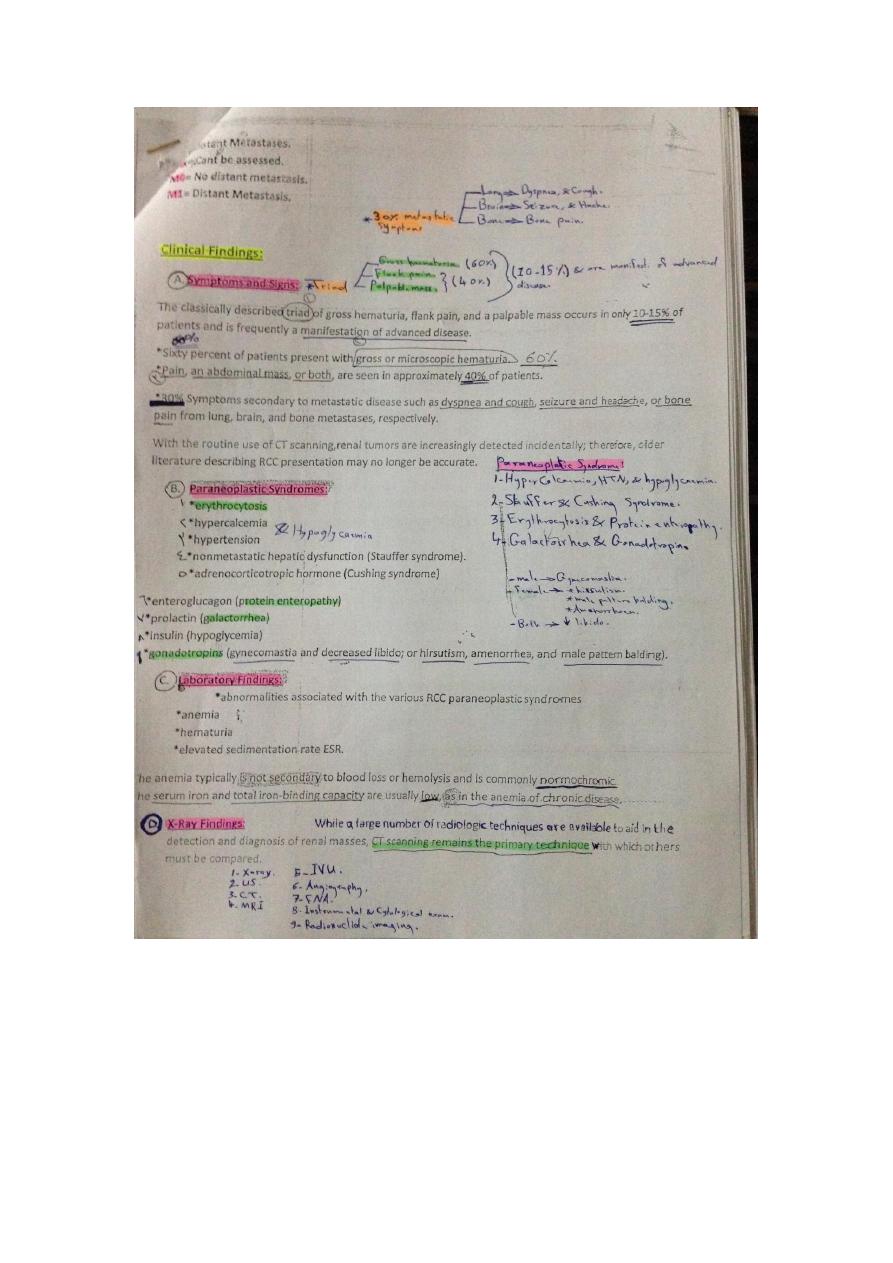 Distant Metastases.
Cant be assessed.
M0= No distant metastasis.
M1= Distant Metastasis.
*30% metastatic symptoms
Lung => Dyspnea, & Cough.
Brain => Seizure, & Hache.
Bone => Bone pain.
Clinical Findings:
A. Symptoms and Signs: *Triad
Gross hematuria (60%)
Flank pain
Palpable mass } (40%)
(10-15%) & are manifest. of advanced disease.
The classically described triad of gross hematuria, flank pain, and a palpable mass occurs in only 10-15% of
patients and is frequently a manifestation of advanced disease.
60%
*Sixty percent of patients present with gross or microscopic hematuria. 60%
*Pain, an abdominal mass, or both, are seen in approximately 40% of patients.
*30% Symptoms secondary to metastatic disease such as dyspnea and cough, seizure and headache, or bone
pain from lung, brain, and bone metastases, respectively.
With the routine use of CT scanning,renal tumors are increasingly detected incidentally; therefore, older
literature describing RCC presentation may no longer be accurate.
Paraneoplastic Syndrome:
1-HyperCalcaemia, HTN, & hypoglycaemia.
2-Stauffer & Cushing Syndrome.
3-Erythrocytosis & Protein enteropathy.
4-Galactorrhea & Gonadotropins
-male -> Gynecomastia.
-Female -> *hirsutism.
*male pattern balding.
*Amenorrhoea.
-Both -> ↓ libido.
B. Paraneoplastic Syndromes:
١ *erythrocytosis
٢ *hypercalcemia & Hypoglycaemia
٣ *hypertension
٤ *nonmetastatic hepatic dysfunction (Stauffer syndrome).
٥ *adrenocorticotropic hormone (Cushing syndrome)
٦ *enteroglucagon (protein enteropathy)
٧ *prolactin (galactorrhea)
٨ *insulin (hypoglycemia)
٩ *gonadotropins (gynecomastia and decreased libido; or hirsutism, amenorrhea, and male pattern balding).
C. Laboratory Findings:
*abnormalities associated with the various RCC paraneoplastic syndromes
*anemia
*hematuria
*elevated sedimentation rate ESR.
he anemia typically is not secondary to blood loss or hemolysis and is commonly normochromic.
he serum iron and total iron-binding capacity are usually low, as in the anemia of chronic disease.
D. X-Ray Findings: While a large number of radiologic techniques are available to aid in the
detection and diagnosis of renal masses, CT scanning remains the primary technique with which others
must be compared.
1- X-ray.
2- US.
3- CT.
4- MRI
5- IVU.
6- Angiography.
7- FNA.
8- Instrumental & Cytological exam.
9- Radionuclide imaging.